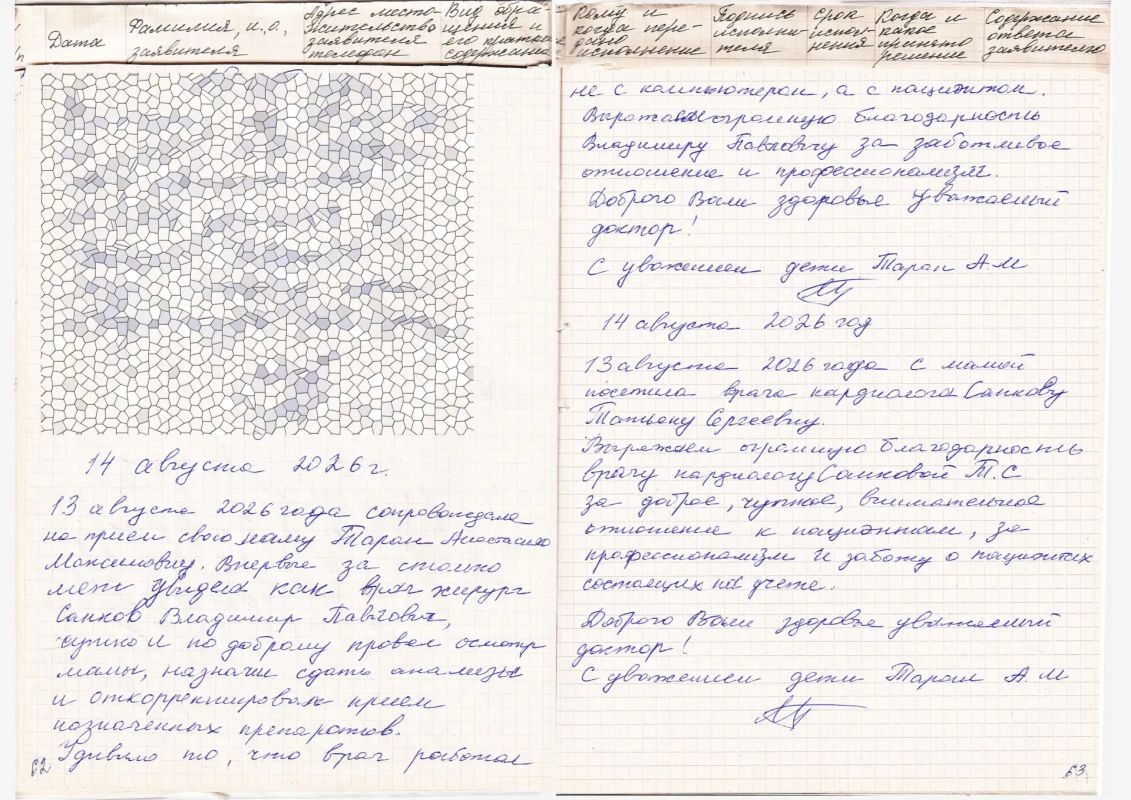 Дата
Фамилия, и.о.,
заявителя
Адрес место-
жительство
заявителя
телефон
Вид обра-
щения и
его кратное
содержание
Кому и
когда пере-
дано
исполнение
Подпись
исполни-
теля
Срок
испол-
нения
Когда и
какое
принято
решение
Содержание
ответа
заявителю
14 августа 2026 г.
13 августа 2026 года сопровождала
на прием свою маму Таран Анастасию
Максимовну. Впервые за столько
лет увидела как врач хирург
Санков Владимир Павлович,
чутко и по доброму провел осмотр
мамы, назначил сдать анализы
и откорректировал прием
назначенных препаратов.
Удивило то, что врач работал
62
не с компьютером, а с пациентом.
Выражаем огромную благодарность
Владимиру Павловичу за заботливое
отношение и профессионализм.
Доброго Вам здоровья Уважаемый
доктор!
С уважением дети Таран А.М
14 августа 2026 год
13 августа 2026 года с мамой
посетила врача кардиолога Санкову
Татьяну Сергеевну.
Выражаем огромную благодарность
врачу кардиологу Санковой Т.С.
за доброе, чуткое, внимательное
отношение к пациентам, за
профессионализм и заботу о пациентах
состоящих на учете.
Доброго Вам здоровья уважаемый
доктор!
С уважением дети Таран А.М
63